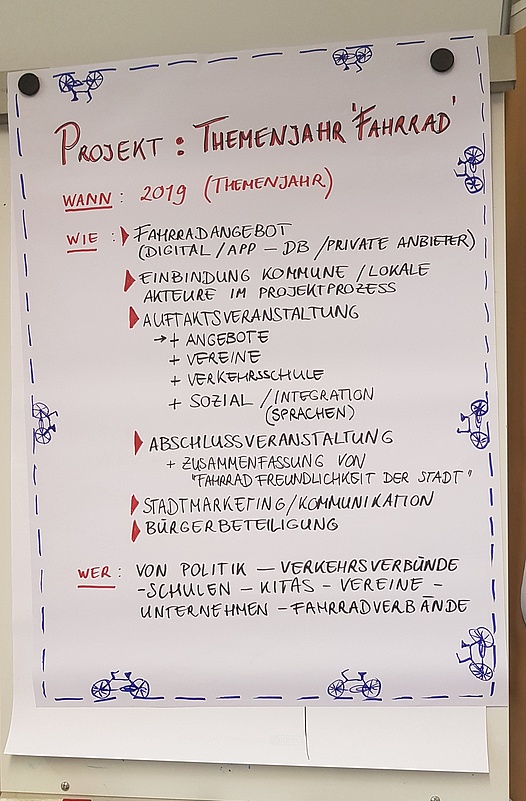 PROJEKT : THEMENJAHR 'FAHRRAD'
WANN : 2019 (THEMENJAHR)
WIE : FAHRRADANGEBOT
(DIGITAL / APP – DB / PRIVATE ANBIETER)
EINBINDUNG KOMMUNE / LOKALE
AKTEURE IM PROJEKTPROZESS
AUFTAKTSVERANSTALTUNG
→ + ANGEBOTE
+ VEREINE
+ VERKEHRSSCHULE
+ SOZIAL / INTEGRATION
(SPRACHEN)
ABSCHLUSSVERANSTALTUNG
+ ZUSAMMENFASSUNG VON
"FAHRRADFREUNDLICHKEIT DER STADT"
STADTMARKETING / KOMMUNIKATION
BÜRGERBETEILIGUNG
WER : VON POLITIK – VERKEHRSVERBÜNDE
- SCHULEN – KITAS – VEREINE –
UNTERNEHMEN – FAHRRADVERBÄNDE